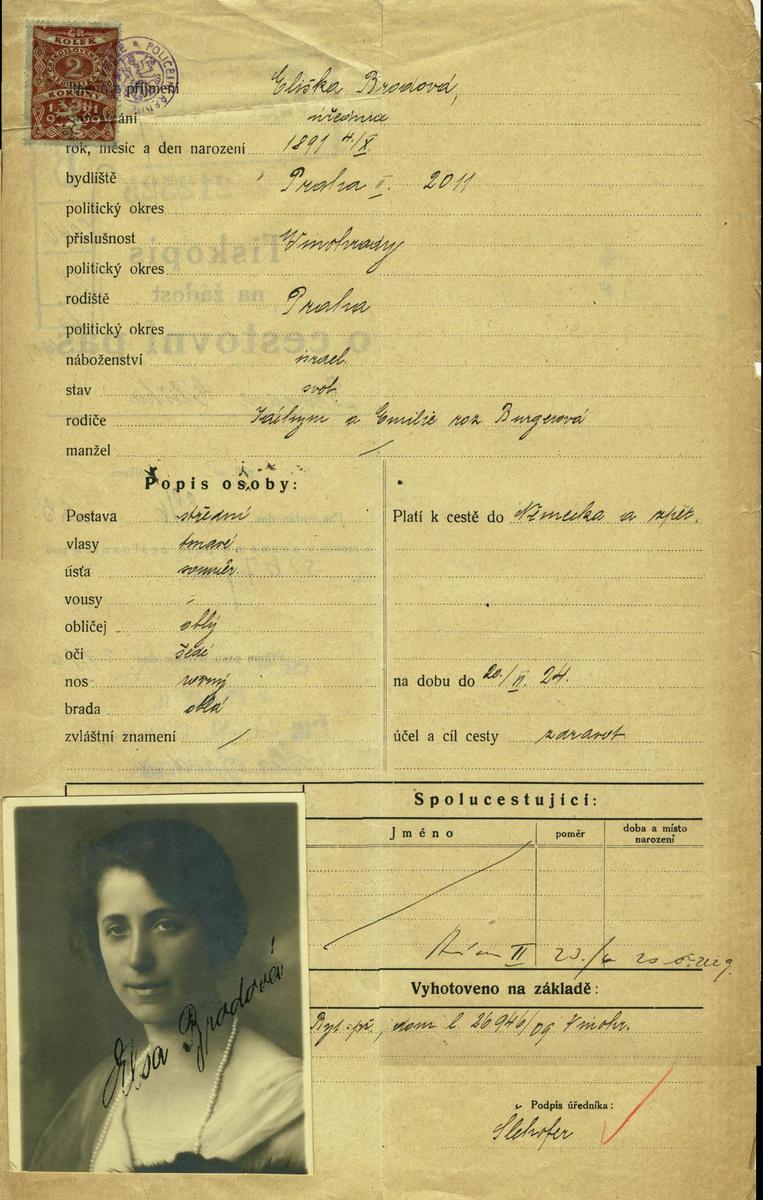 KOLEK
2
KORUNY
příjmení Eliška Brodová,
úřednice
rok, měsíc a den narození 1891 4/X.
bydliště Praha II. 2011
politický okres
příslušnost Vinohrady
politický okres
rodiště Praha
politický okres
náboženství israel.
stav svob.
rodiče Jáchym a Emilie roz Burgerová
manžel /
Popis osoby:
Postava střední
vlasy tmavé
ústa souměr.
vousy -
obličej oblý
oči šedé
nos rovný
brada oblá
zvláštní znamení /
Platí k cestě do Německa a zpět.
na dobu do 20/ 24.
účel a cíl cesty zdravot
Spolucestující:
Jméno poměr doba a místo narození
II
Vyhotoveno na základě:
dom l 26946/09 Vinohr.
Podpis úředníka:
Elsa Brodová